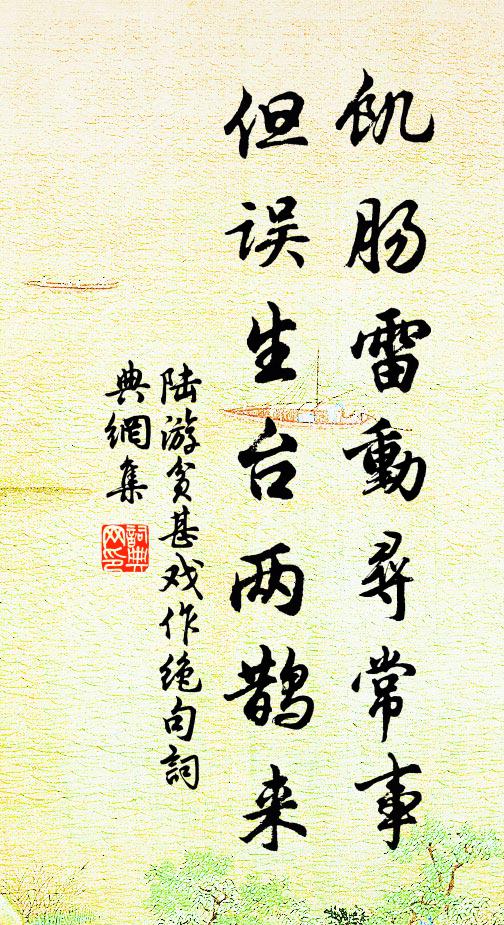 飢肠雷動尋常事
但误生台两鹊来
陆游贫甚戏作绝句詞
典網集
詞典
网印